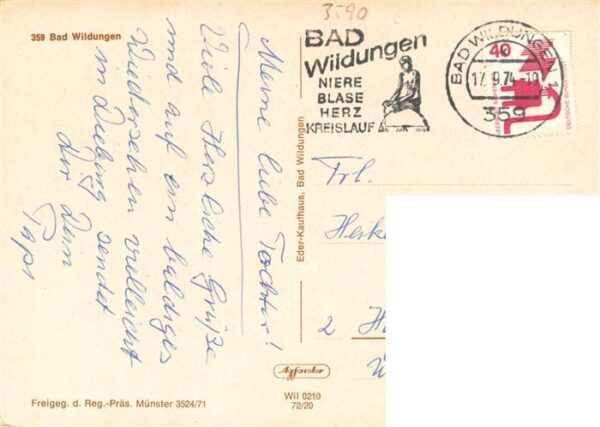 3590
359 Bad Wildungen
Meine liebe Tochter!
Viele Herzliche Grüße
und auf ein baldiges
Wiedersehen vielleicht
in Dieburg sendet
dir Dein
Paps
BAD
Wildungen
NIERE
BLASE
HERZ
KREISLAUF
BAD WILDUNGEN
17.9.74-18
359
40
DEUTSCHE BUNDESPOST
Frl.
Heike
2 H
Eder-Kaufhaus, Bad Wildungen
Agfacolor
Wil 0210
72/20
Freigeg. d. Reg.-Präs. Münster 3524/71